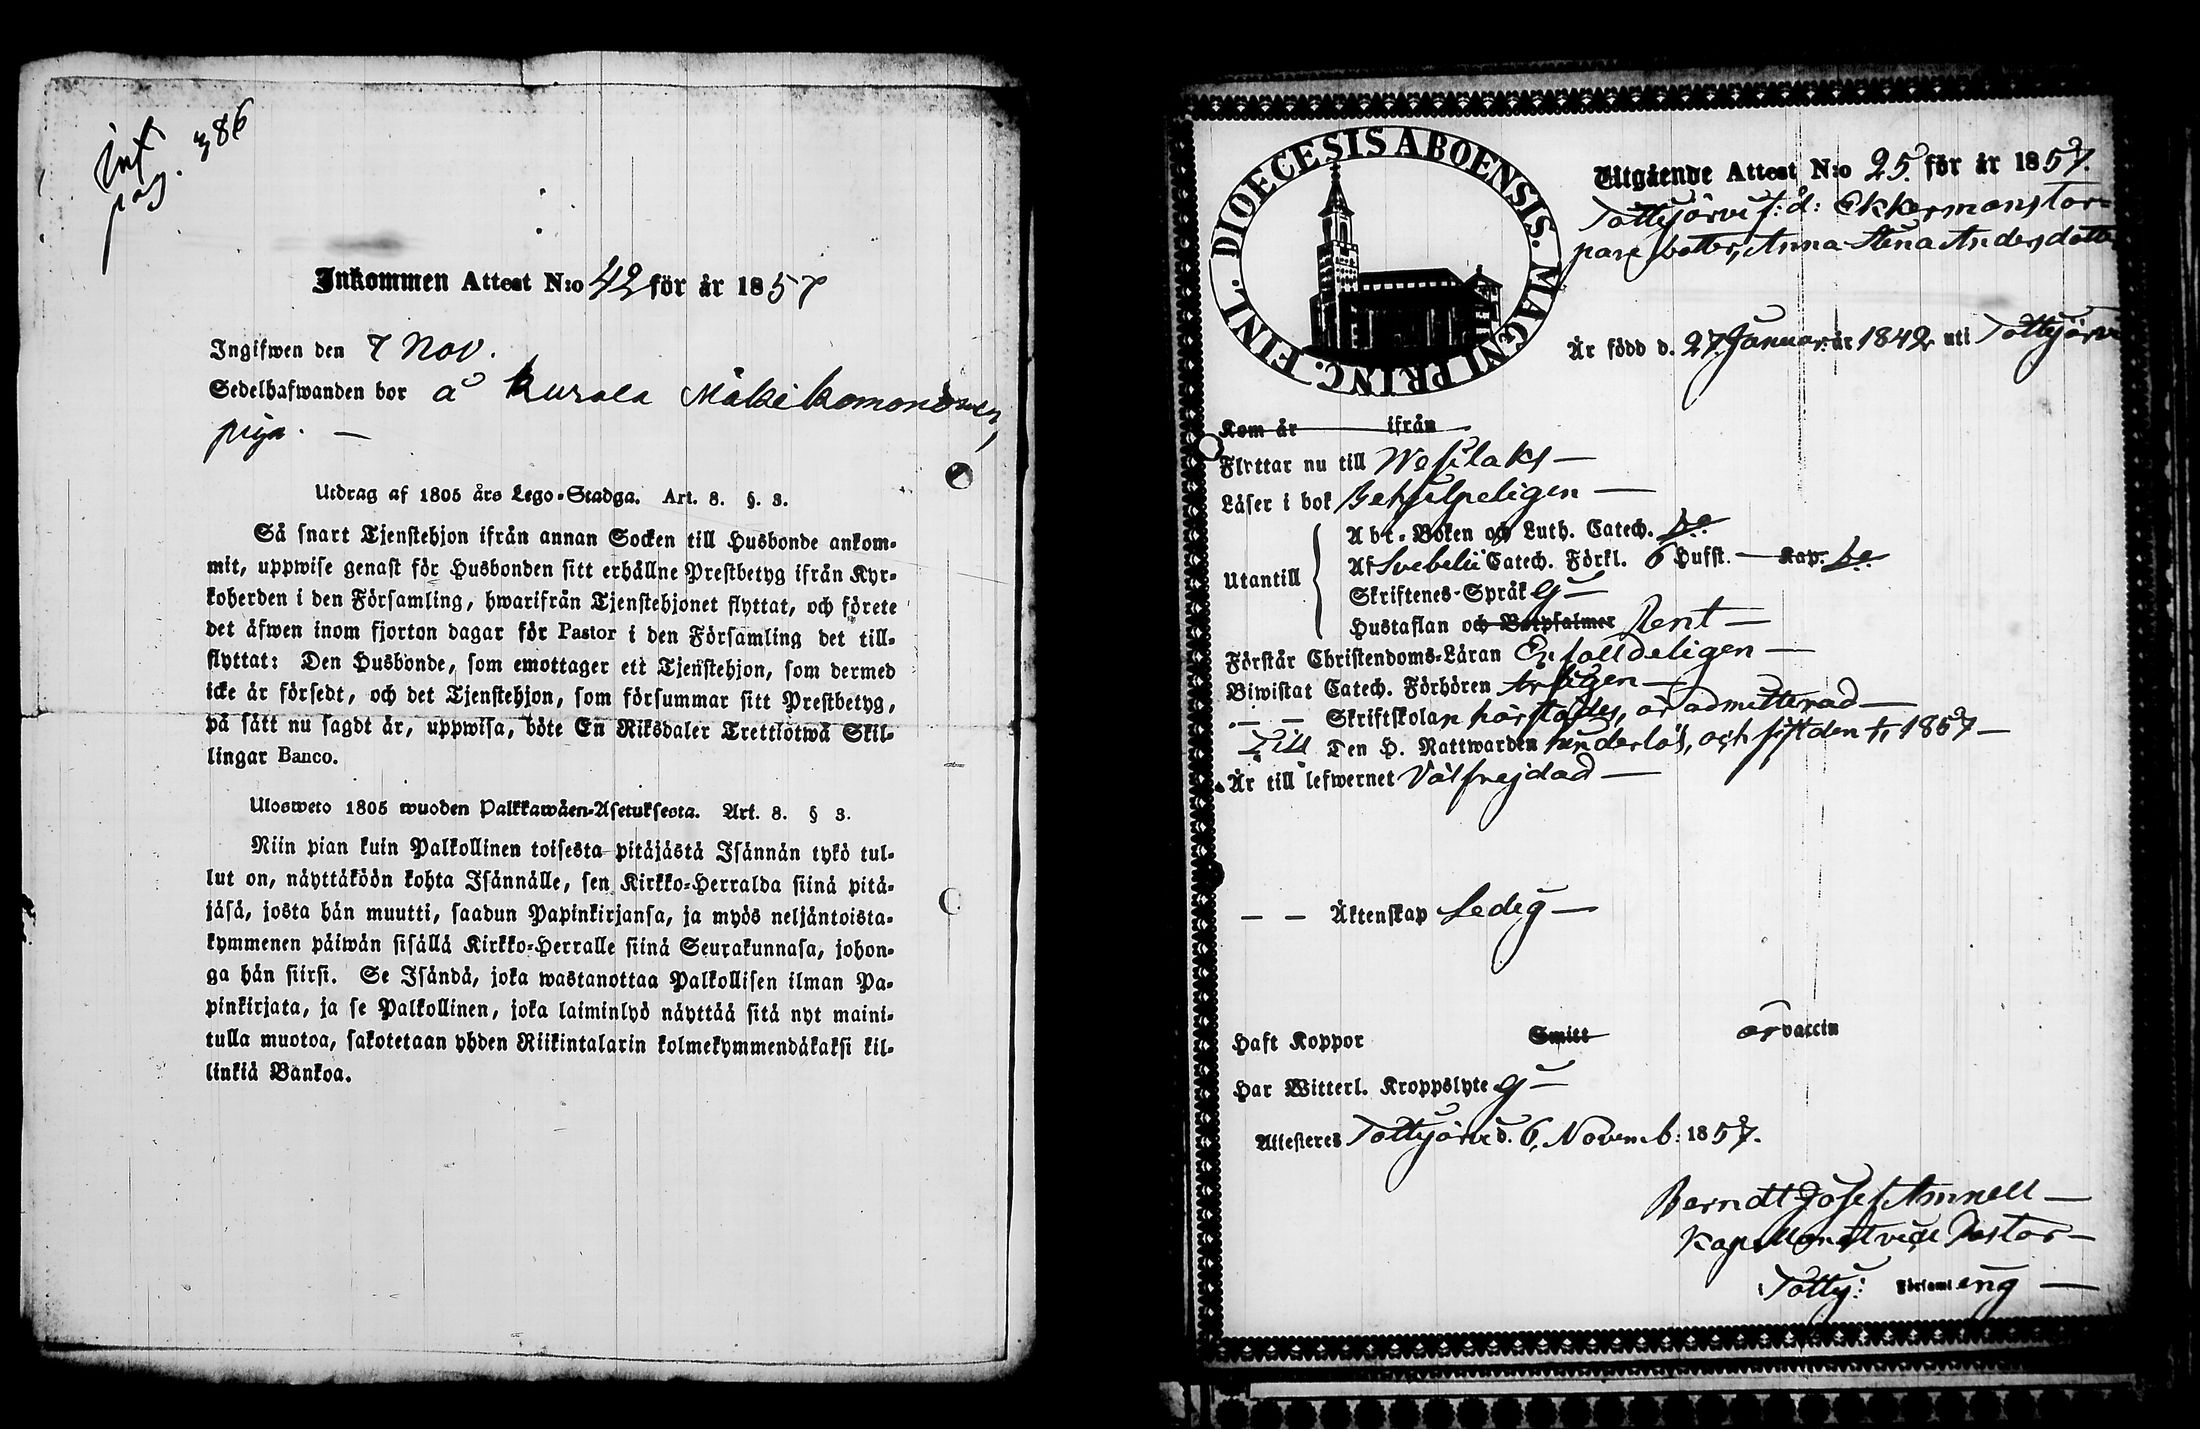 int
pag. 386
Inkommen Attest N:o 42 för år 1857
Ingifwen den 7 Nov.
Sedelhafwanden bor å Kurala Mäki
piga. —
Utdrag af 1805 års Lego-Stadga. Art. 8. §. 3.
Så snart Tjenstehjon ifrån annan Socken till Husbonde ankom-
mit, uppwise genast för Husbonden sitt erhållne Prestbetyg ifrån Kyr-
koherden i den Församling, hwarifrån Tjenstehjonet flyttat, och förete
det äfwen inom fjorton dagar för Pastor i den Församling det till-
flyttat: Den Husbonde, som emottager ett Tjenstehjon, som dermed
icke är försedt, och det Tjenstehjon, som försummar sitt Prestbetyg,
på sätt nu sagdt är, uppwisa, böte En Riksdaler Trettiotwå Skil-
lingar Banco.
Ulosweto 1805 wuoden Palkkawäen-Asetuksesta. Art. 8. § 3.
Niin pian kuin Palkollinen toisesta pitäjästä Isännän tykö tul-
lut on, näyttäköön kohta Isännälle, sen Kirkko-Herralda siinä pitä-
jäsä, josta hän muutti, saadun Papinkirjansa, ja myös neljäntoista-
kymmenen päiwän sisällä Kirkko-Herralle siinä Seurakunnasa, johon-
ga hän siirsi. Se Isändä, joka wastanottaa Palkollisen ilman Pa-
pinkirjata, ja se Palkollinen, joka laiminlyö näyttää sitä nyt maini-
tulla muotoa, sakotetaan yhden Riikintalarin kolmekymmendäkaksi kil-
linkiä Bankoa.
DIOECESIS ABOENSIS. MAGNI PRINC. FINL.
Utgående Attest N:o 25. för år 1857.
Tottijärvi f: d: Ekkermans tor-
pare dotter, Anna Stina Andersdotter
Är född d. 27 Januar. år 1842 uti Tottijärvi
Kom år ifrån
Flyttar nu till Wesilaks —
Läser i bok Behjelpeligen —
Utantill
Abc-Boken och Luth. Catech. be.
Af Svebelii Catech. Förkl. 6 Hufst. — Kap. be.
Skriftenes-Språk ej —
Hustaflan och Botpsalmer Rent —
Förstår Christendoms-Läran Enfalldeligen —
Biwistat Catech. Förhören Årligen —
— — Skriftskolan härstädes, är admitterad —
Till Den H. Nattwarden hinderlös, och sist den 1857 —
Är till lefwernet Välfrejdad —
— — Äktenskap Ledig —
Haft Koppor Smitt är vaccin
Har Witterl. Kroppslyte ej —
Attesteres Tottijärvi d. 6, Novemb: 1857.
Berndt Josef Amnell —
Kapellan et vice Pastor —
Totty: Församl. ing —